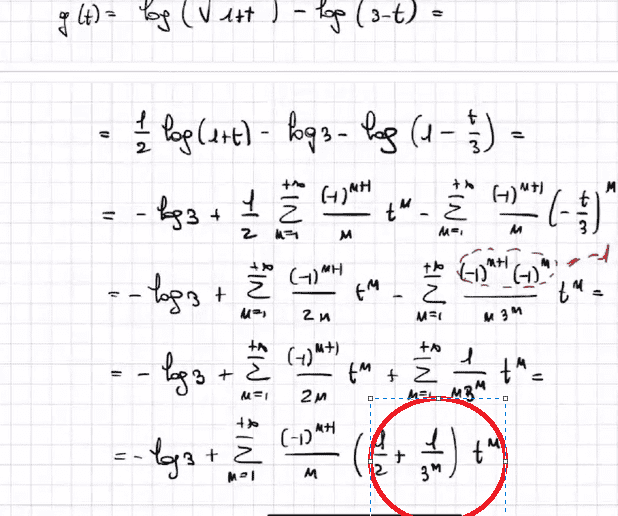 g(t) = log(√1+t) - log(3-t) =
= 1/2 log(1+t) - log3 - log(1 - t/3) =
= - log3 + 1/2 ∑_{n=1}^{+∞} (-1)^{n+1}/n t^n - ∑_{n=1}^{+∞} (-1)^{n+1}/n (-t/3)^n
= - log3 + ∑_{n=1}^{+∞} (-1)^{n+1}/2n t^n - ∑_{n=1}^{+∞} (-1)^{n+1}(-1)^n/n3^n t^n = -1
= - log3 + ∑_{n=1}^{+∞} (-1)^{n+1}/2n t^n + ∑_{n=1}^{+∞} 1/n3^n t^n =
= - log3 + ∑_{n=1}^{+∞} (-1)^{n+1}/n (1/2 + 1/3^n) t^n